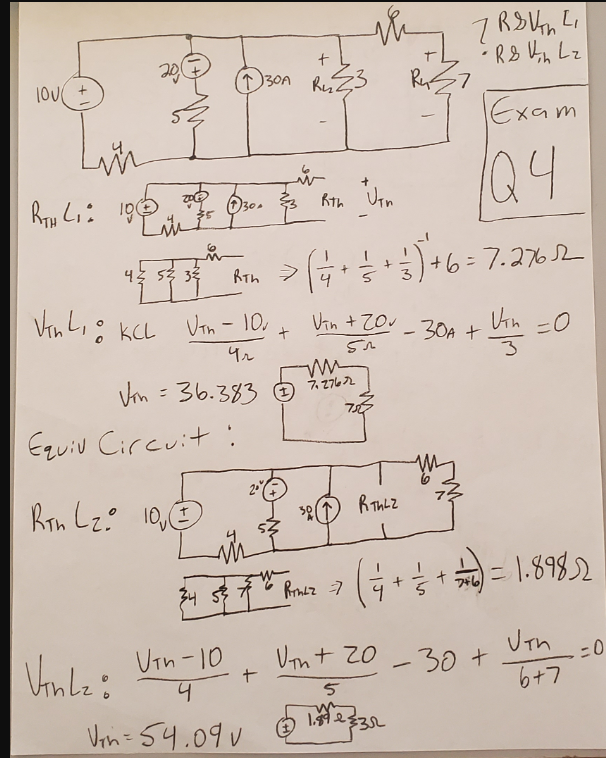 6
? R & VTh L1
20V
30A
RL2 3
RL1 7
· R & VTh L2
10V
5
4
Exam
Q4
RTH L1: 10 4 20 5 30A 3 6 RTh + VTh -
4 5 3 6 RTh ⇒ (1/4 + 1/5 + 1/3)^-1 + 6 = 7.276 Ω
VTh L1: KCL (VTh - 10V)/4Ω + (VTh + 20V)/5Ω - 30A + VTh/3 = 0
VTh = 36.383 7.276Ω 7Ω
Equiv Circuit:
RTh L2: 10V 4 20V 5 30A RThL2 6 7
4 5 7 6 RThL2 ⇒ (1/4 + 1/5 + 1/7+6) = 1.898 Ω
VTh L2: (VTh - 10)/4 + (VTh + 20)/5 - 30 + VTh/(6+7) = 0
VTh = 54.09 V 1.89Ω 3Ω